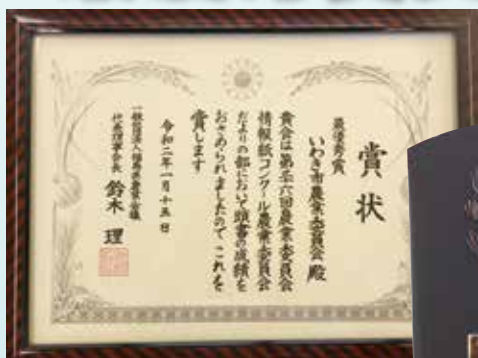 賞状
最優秀賞
いわき市農業委員会 殿
貴会は第三六回農業委員会
情報紙コンクール農業委員会
だよりの部において頭書の成績を
おさめられましたので これを
賞します
令和二年一月十五日
一般社団法人福島県農業会議
代表理事会長 鈴木 理